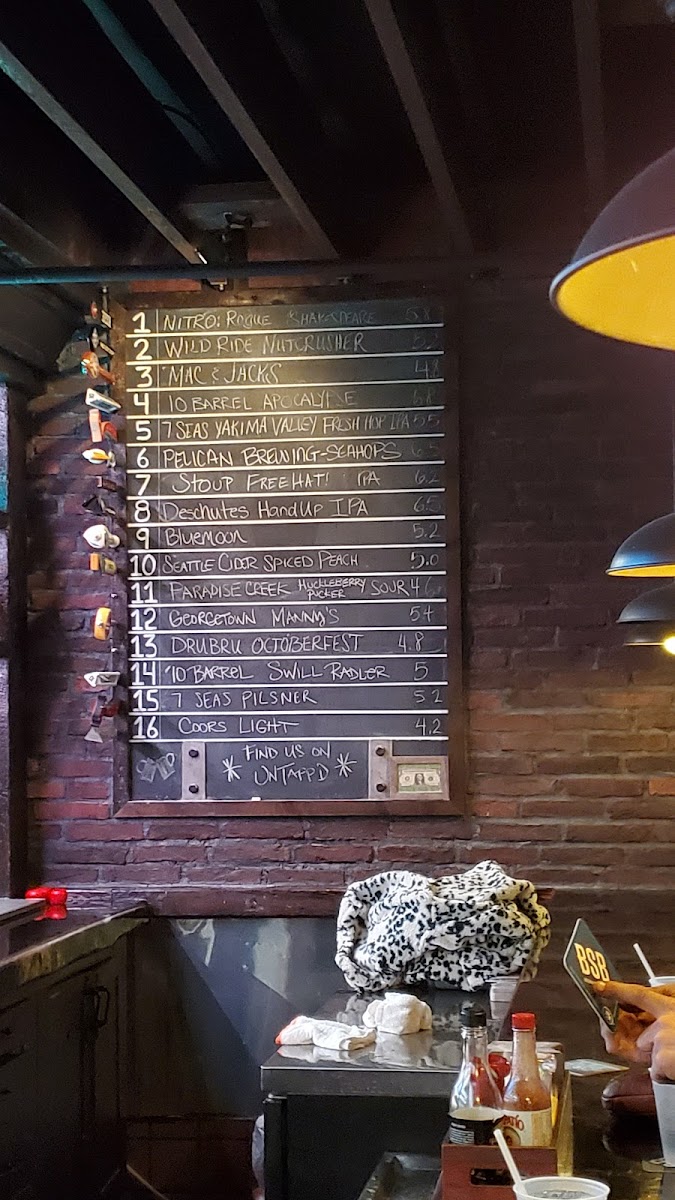 1 NITRO: ROGUE SHAKESPEARE 5.8
2 WILD RIDE NUTCRUSHER
3 MAC & JACKS 4.8
4 10 BARREL APOCALYPSE 6.8
5 7 SEAS YAKIMA VALLEY FRESH HOP IPA 5.5
6 PELICAN BREWING-SEAHOPS 6.5
7 STOUP FREEHAT! IPA 6.2
8 Deschutes Hand Up IPA 6.5
9 Bluemoon 5.2
10 SEATTLE CIDER SPICED PEACH 5.0
11 PARADISE CREEK HUCKLEBERRY PUCKER SOUR 4.6
12 GEORGETOWN MANNY'S 5.4
13 DRUBRU OCTÖBERFEST 4.8
14 10 BARREL SWILL RADLER 5
15 7 SEAS PILSNER 5.2
16 COORS LIGHT 4.2
FIND US ON
UNTAPP'D
BSB